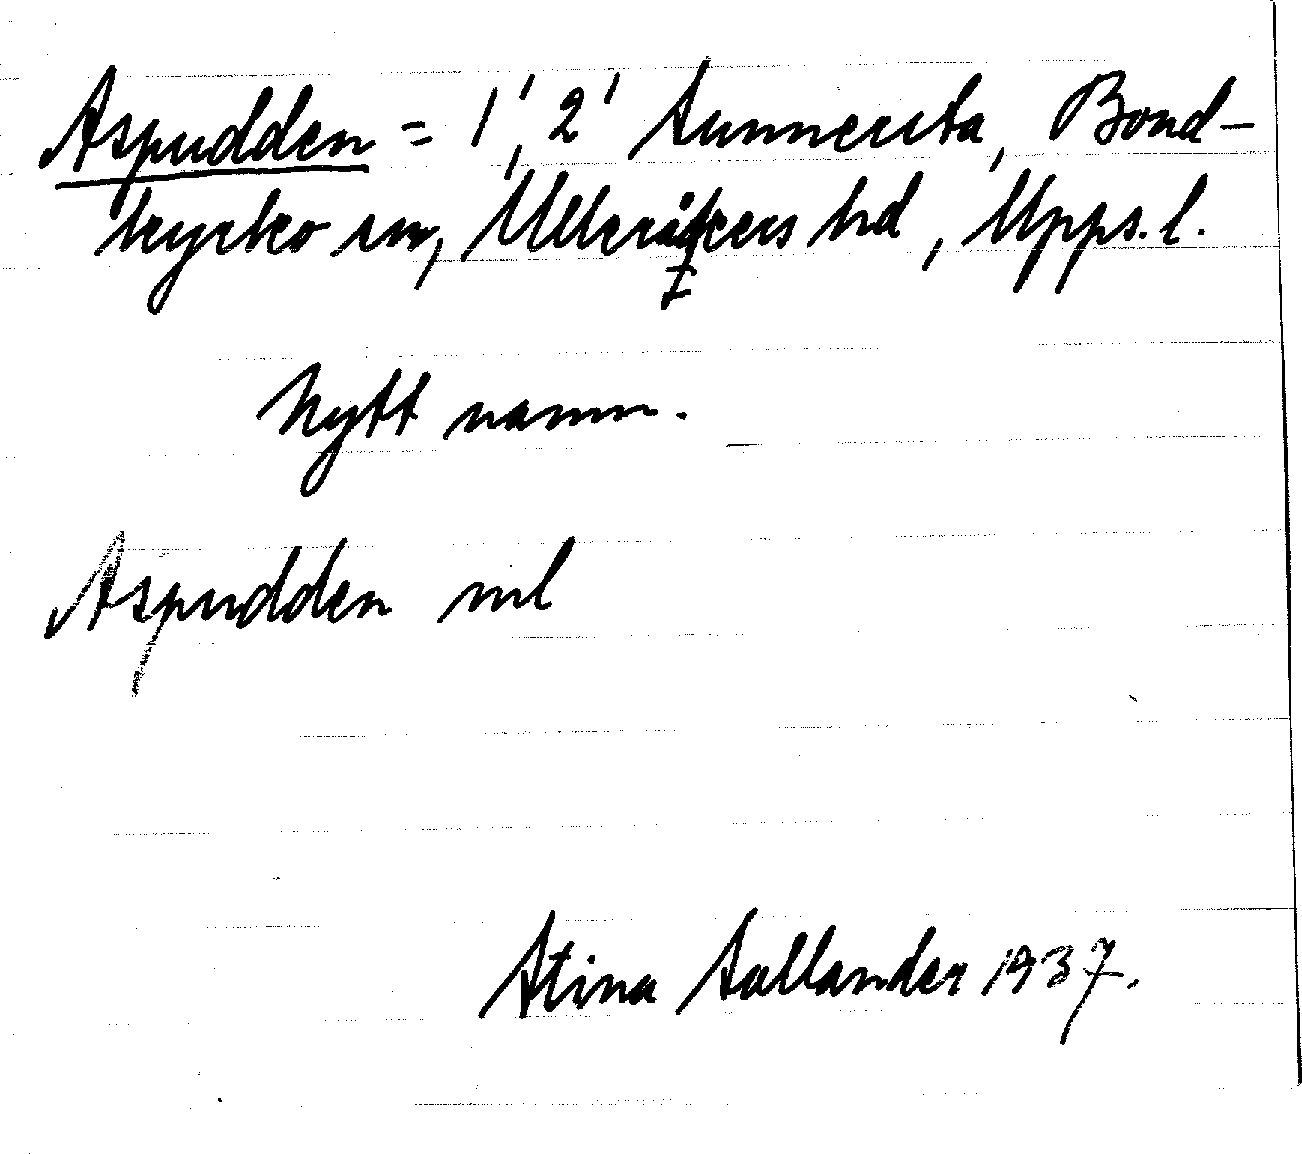 Aspudden = 1', 2' Sunnersta, Bond-
kyrko sn, Ulleråkers hd, Upps. l.
Nytt namn.
Aspudden ml
Stina Sallander 1937.